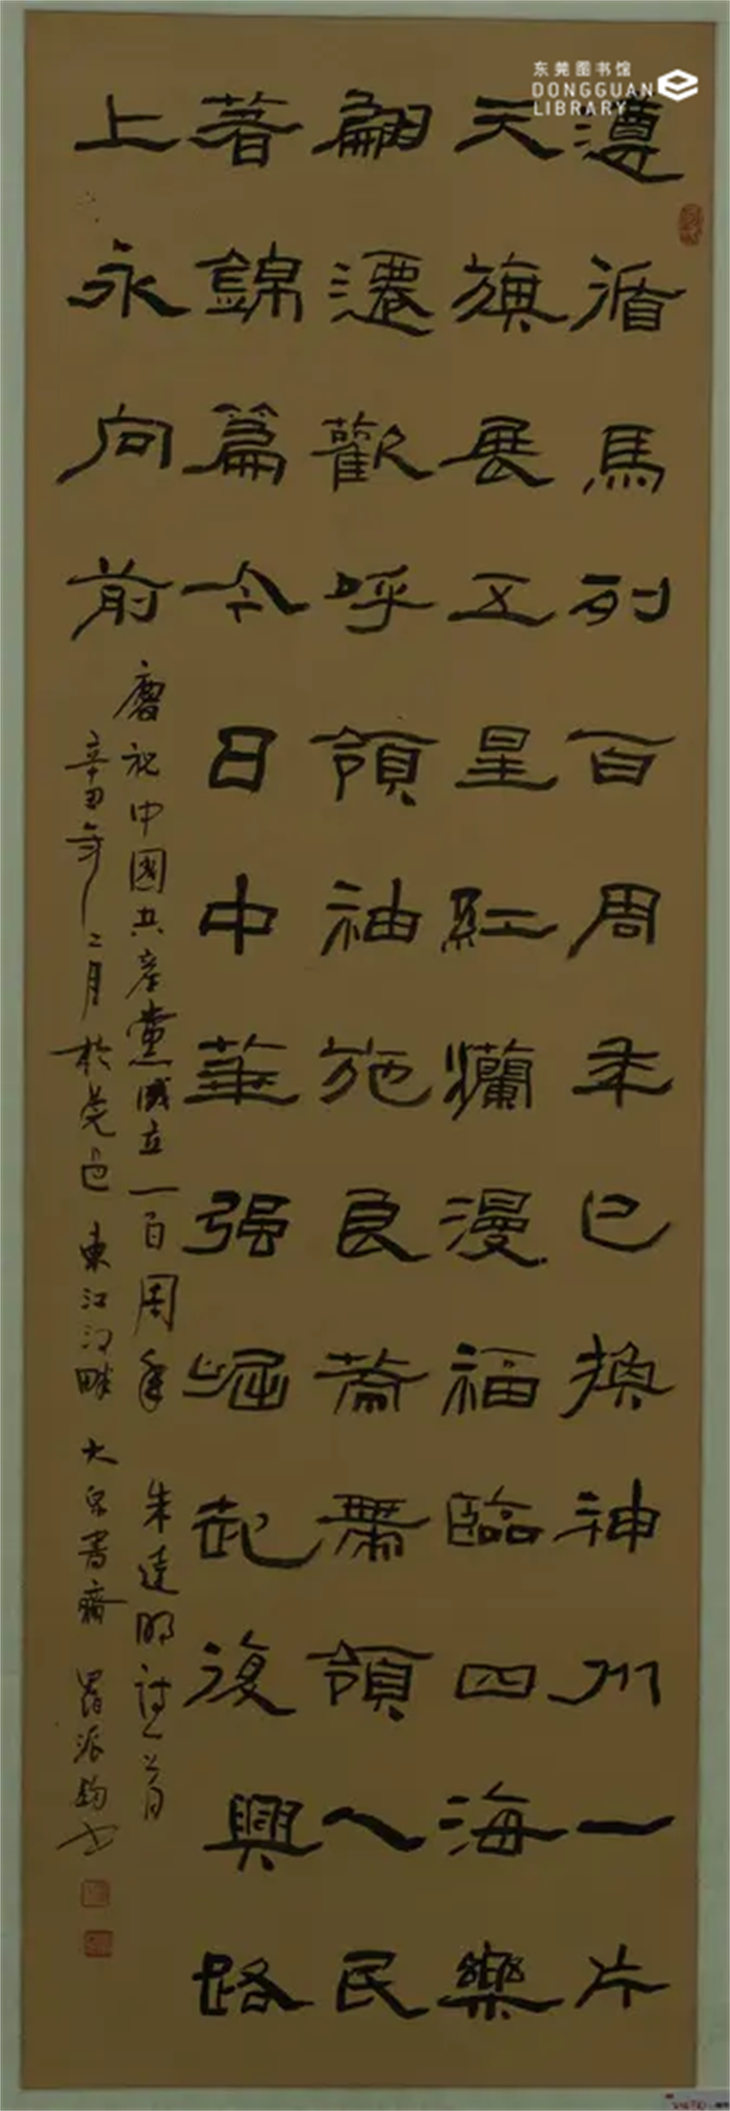 东莞图书馆
DONGGUAN
LIBRARY
遵循馬列百周年已換神州一片
天旗展五星紅爛漫福臨四海樂
翩遷歡呼領袖施良蓄肅領人民
著錦篇今日中華强崛起復興路
上永向前
慶祝中國共產黨成立一百周年 朱達明詩一首
辛丑年二月於莞邑東江河畔 大泉書齋 羅派鈞書